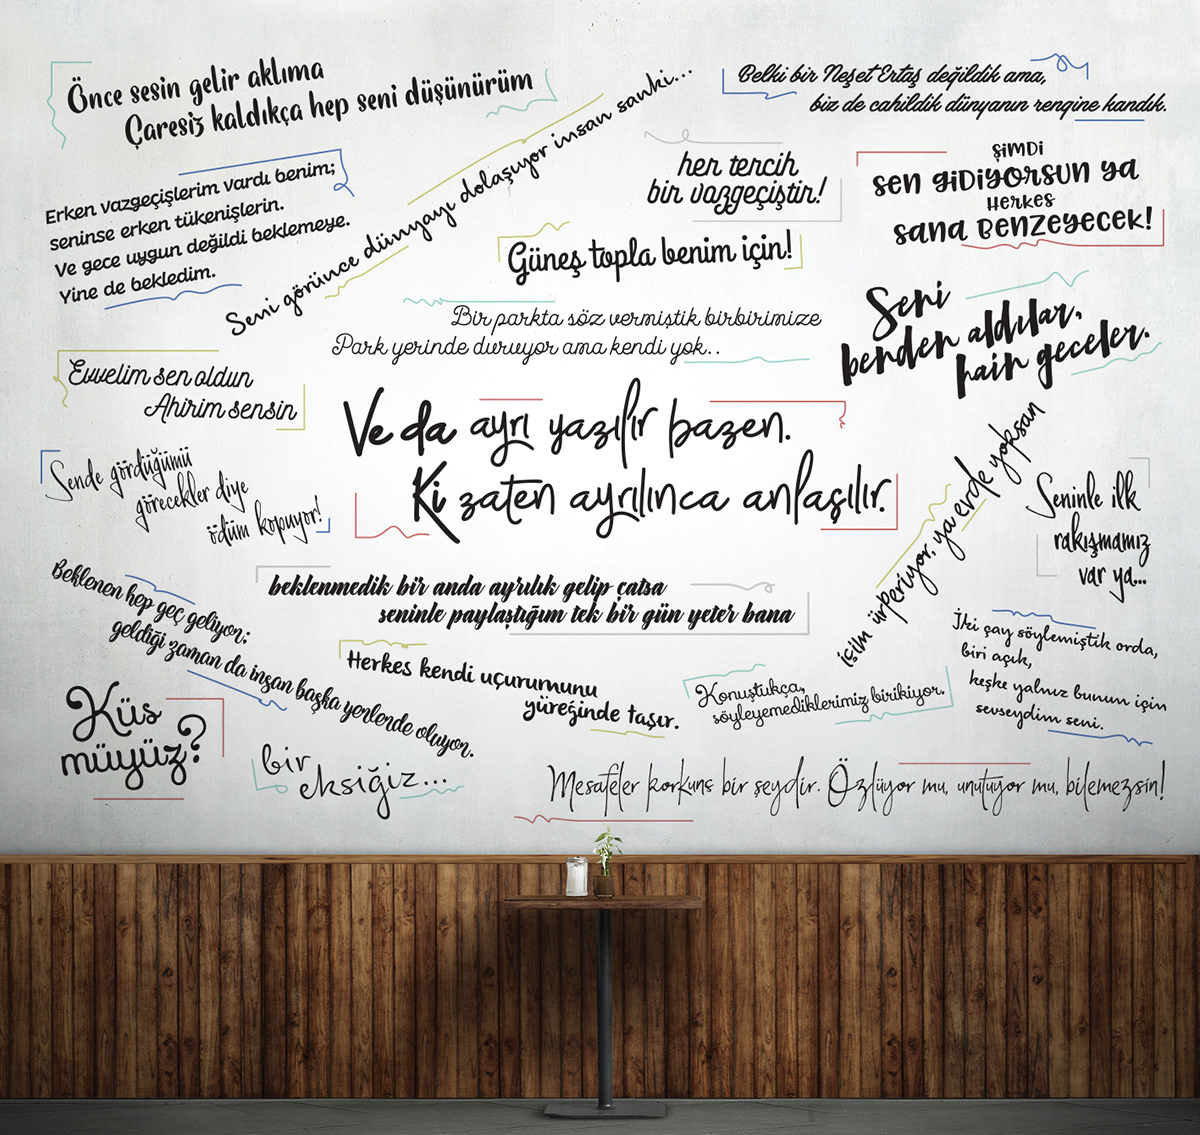 Önce sesin gelir aklıma
Çaresiz kaldıkça hep seni düşünürüm
Seni görünce dünyayı dolaşıyor insan sanki...
Belki bir Neşet Ertaş değildik ama,
biz de cahildik dünyanın rengine kandık.
Erken vazgeçişlerim vardı benim;
seninse erken tükenişlerin.
Ve gece uygun değildi beklemeye.
Yine de bekledim.
her tercih
bir vazgeçiştir!
şimdi
sen gidiyorsun ya
Herkes
sana Benzeyecek!
Güneş topla benim için!
Bir parkta söz vermiştik birbirimize
Park yerinde duruyor ama kendi yok..
Seni
benden aldılar,
hain geceler.
Evvelim sen oldun
Ahirim sensin
Ve da ayrı yazılır bazen.
Ki zaten ayrılınca anlaşılır.
Sende gördüğümü
görecekler diye
ödüm kopuyor!
isim ürperiyor, ya evde yoksan
Seninle ilk
rakışmamız
var ya...
Beklenen hep geç geliyor;
geldiği zaman da insan başka yerlerde oluyor.
beklenmedik bir anda ayrılık gelip çatsa
seninle paylaştığım tek bir gün yeter bana
Herkes kendi uçurumunu
yüreğinde taşır.
Konuştukça,
söyleyemediklerimiz birikiyor.
İki çay söylemiştik orda,
biri açık,
keşke yalnız bunun için
sevseydim seni.
Küs
müyüz?
bir
eksiğiz...
Mesafeler korkunç bir şeydir. Özlüyor mu, unutuyor mu, bilemezsin!